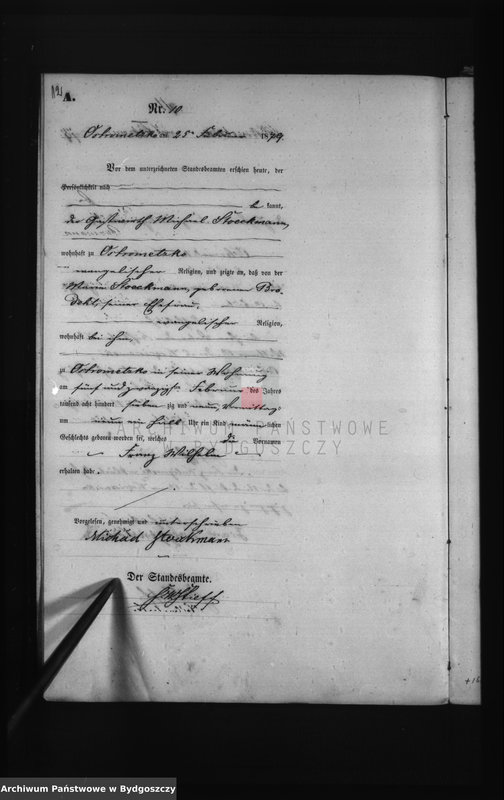 12
A.
Nr. 10
Ostrometzko am 25ten Februar 1879.
Vor dem unterzeichneten Standesbeamten erschien heute, der
Persönlichkeit nach
be kannt,
der Gastwirth Michael Stoeckmann,
wohnhaft zu Ostrometzko
evangelischer Religion, und zeigte an, daß von der
Marie Stoeckmann, geborenen
seiner Ehefrau,
evangelischer Religion,
wohnhaft bei ihm,
zu Ostrometzko in seiner Wohnung
am fünf und zwanzigsten Februar des Jahres
tausend acht hundert sieben zig und neun, Vormittags
um neun ein halb Uhr ein Kind männ lichen
Geschlechts geboren worden sei, welches die Vornamen
Franz Wilhelm
erhalten habe.
Vorgelesen, genehmigt und unterschrieben
Michael Stoeckmann
Der Standesbeamte.
ARCHIWUM PAŃSTWOWE
W BYDGOSZCZY
Archiwum Państwowe w Bydgoszczy